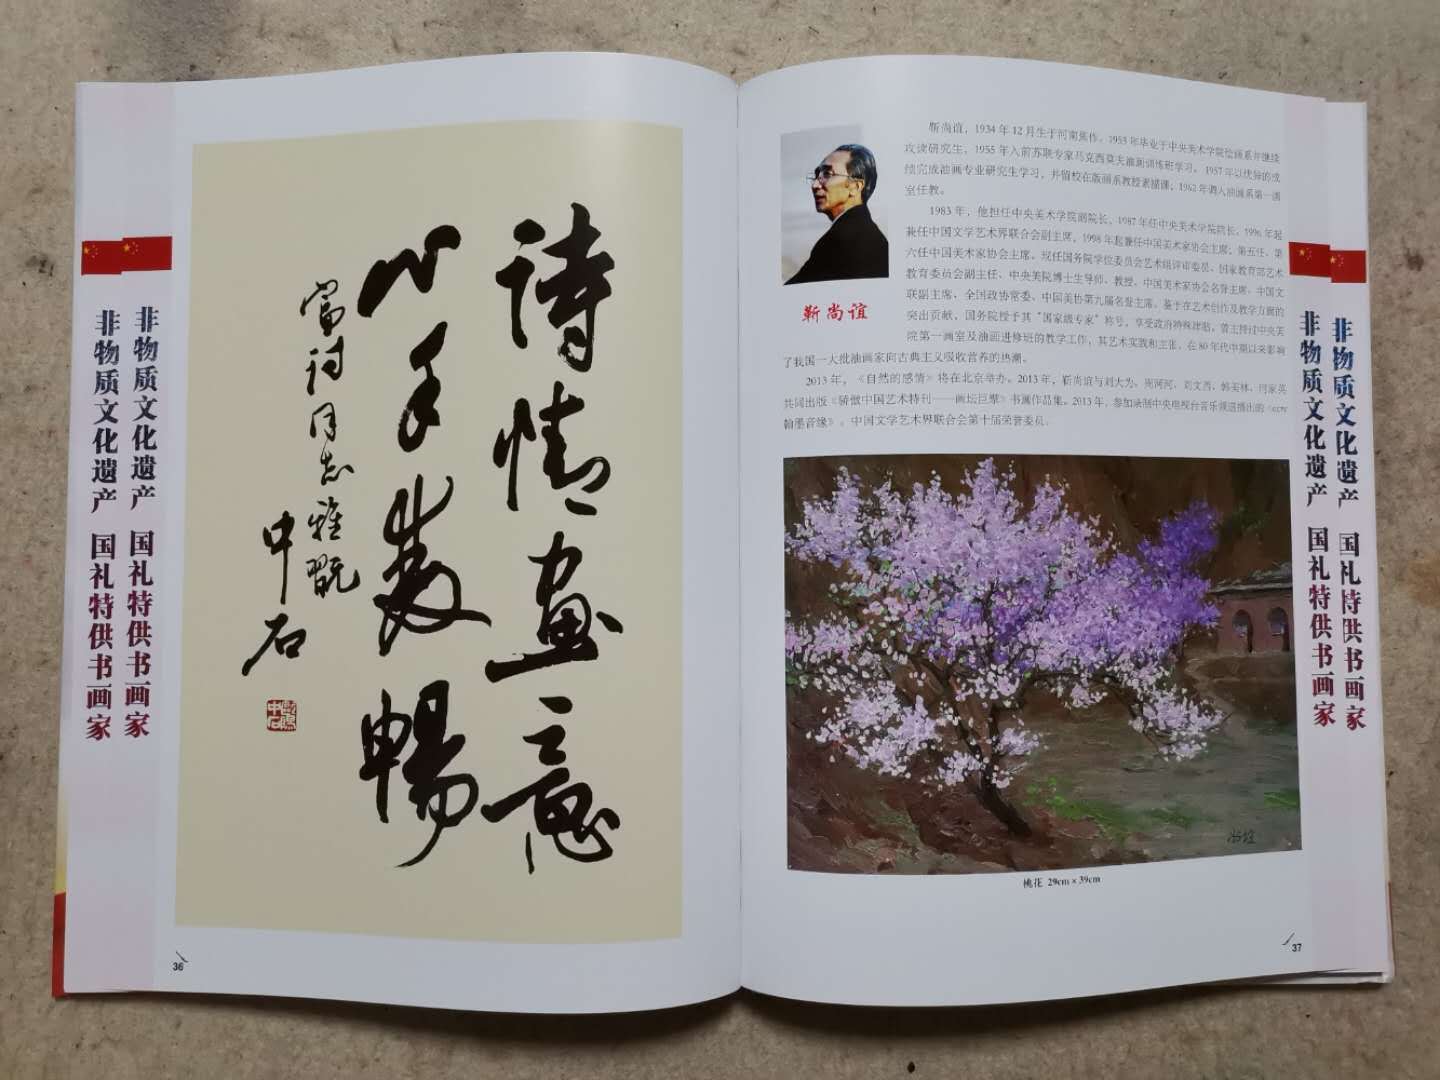 非物质文化遗产 国礼特供书画家
非物质文化遗产 国礼特供书画家
诗情画意
心手双畅
富诗同志雅玩
中石
36
靳尚谊，1934年12月生于河南焦作。1953年毕业于中央美术学院绘画系并继续
攻读研究生，1955年入前苏联专家马克西莫夫油画训练班学习。1957年以优异的成
绩完成油画专业研究生学习，并留校在版画系教授素描课，1962年调入油画系第一画
室任教。
1983年，他担任中央美术学院副院长，1987年任中央美术学院院长。1996年起
兼任中国文学艺术界联合会副主席，1998年起兼任中国美术家协会主席。第五任、第
六任中国美术家协会主席。现任国务院学位委员会艺术组评审委员、国家教育部艺术
教育委员会副主任、中央美院博士生导师、教授、中国美术家协会名誉主席、中国文
联副主席、全国政协常委、中国美协第九届名誉主席。鉴于在艺术创作及教学方面的
突出贡献，国务院授予其“国家级专家”称号，享受政府特殊津贴。曾主持过中央美
院第一画室及油画进修班的教学工作，其艺术实践和主张，在80年代中期以来影响
了我国一大批油画家向古典主义吸收营养的热潮。
2013年，《自然的感情》将在北京举办。2013年，靳尚谊与刘大为、刘文西、韩美林、何家英
共同出版《骄傲中国艺术特刊——画坛巨擘》书画作品集。2013年，参加录制中央电视台音乐频道播出的《cctv
翰墨音缘》。中国文学艺术界联合会第十届荣誉委员。
靳尚谊
尚谊
桃花 29cm×39cm
37
非物质文化遗产 国礼特供书画家
非物质文化遗产 国礼特供书画家